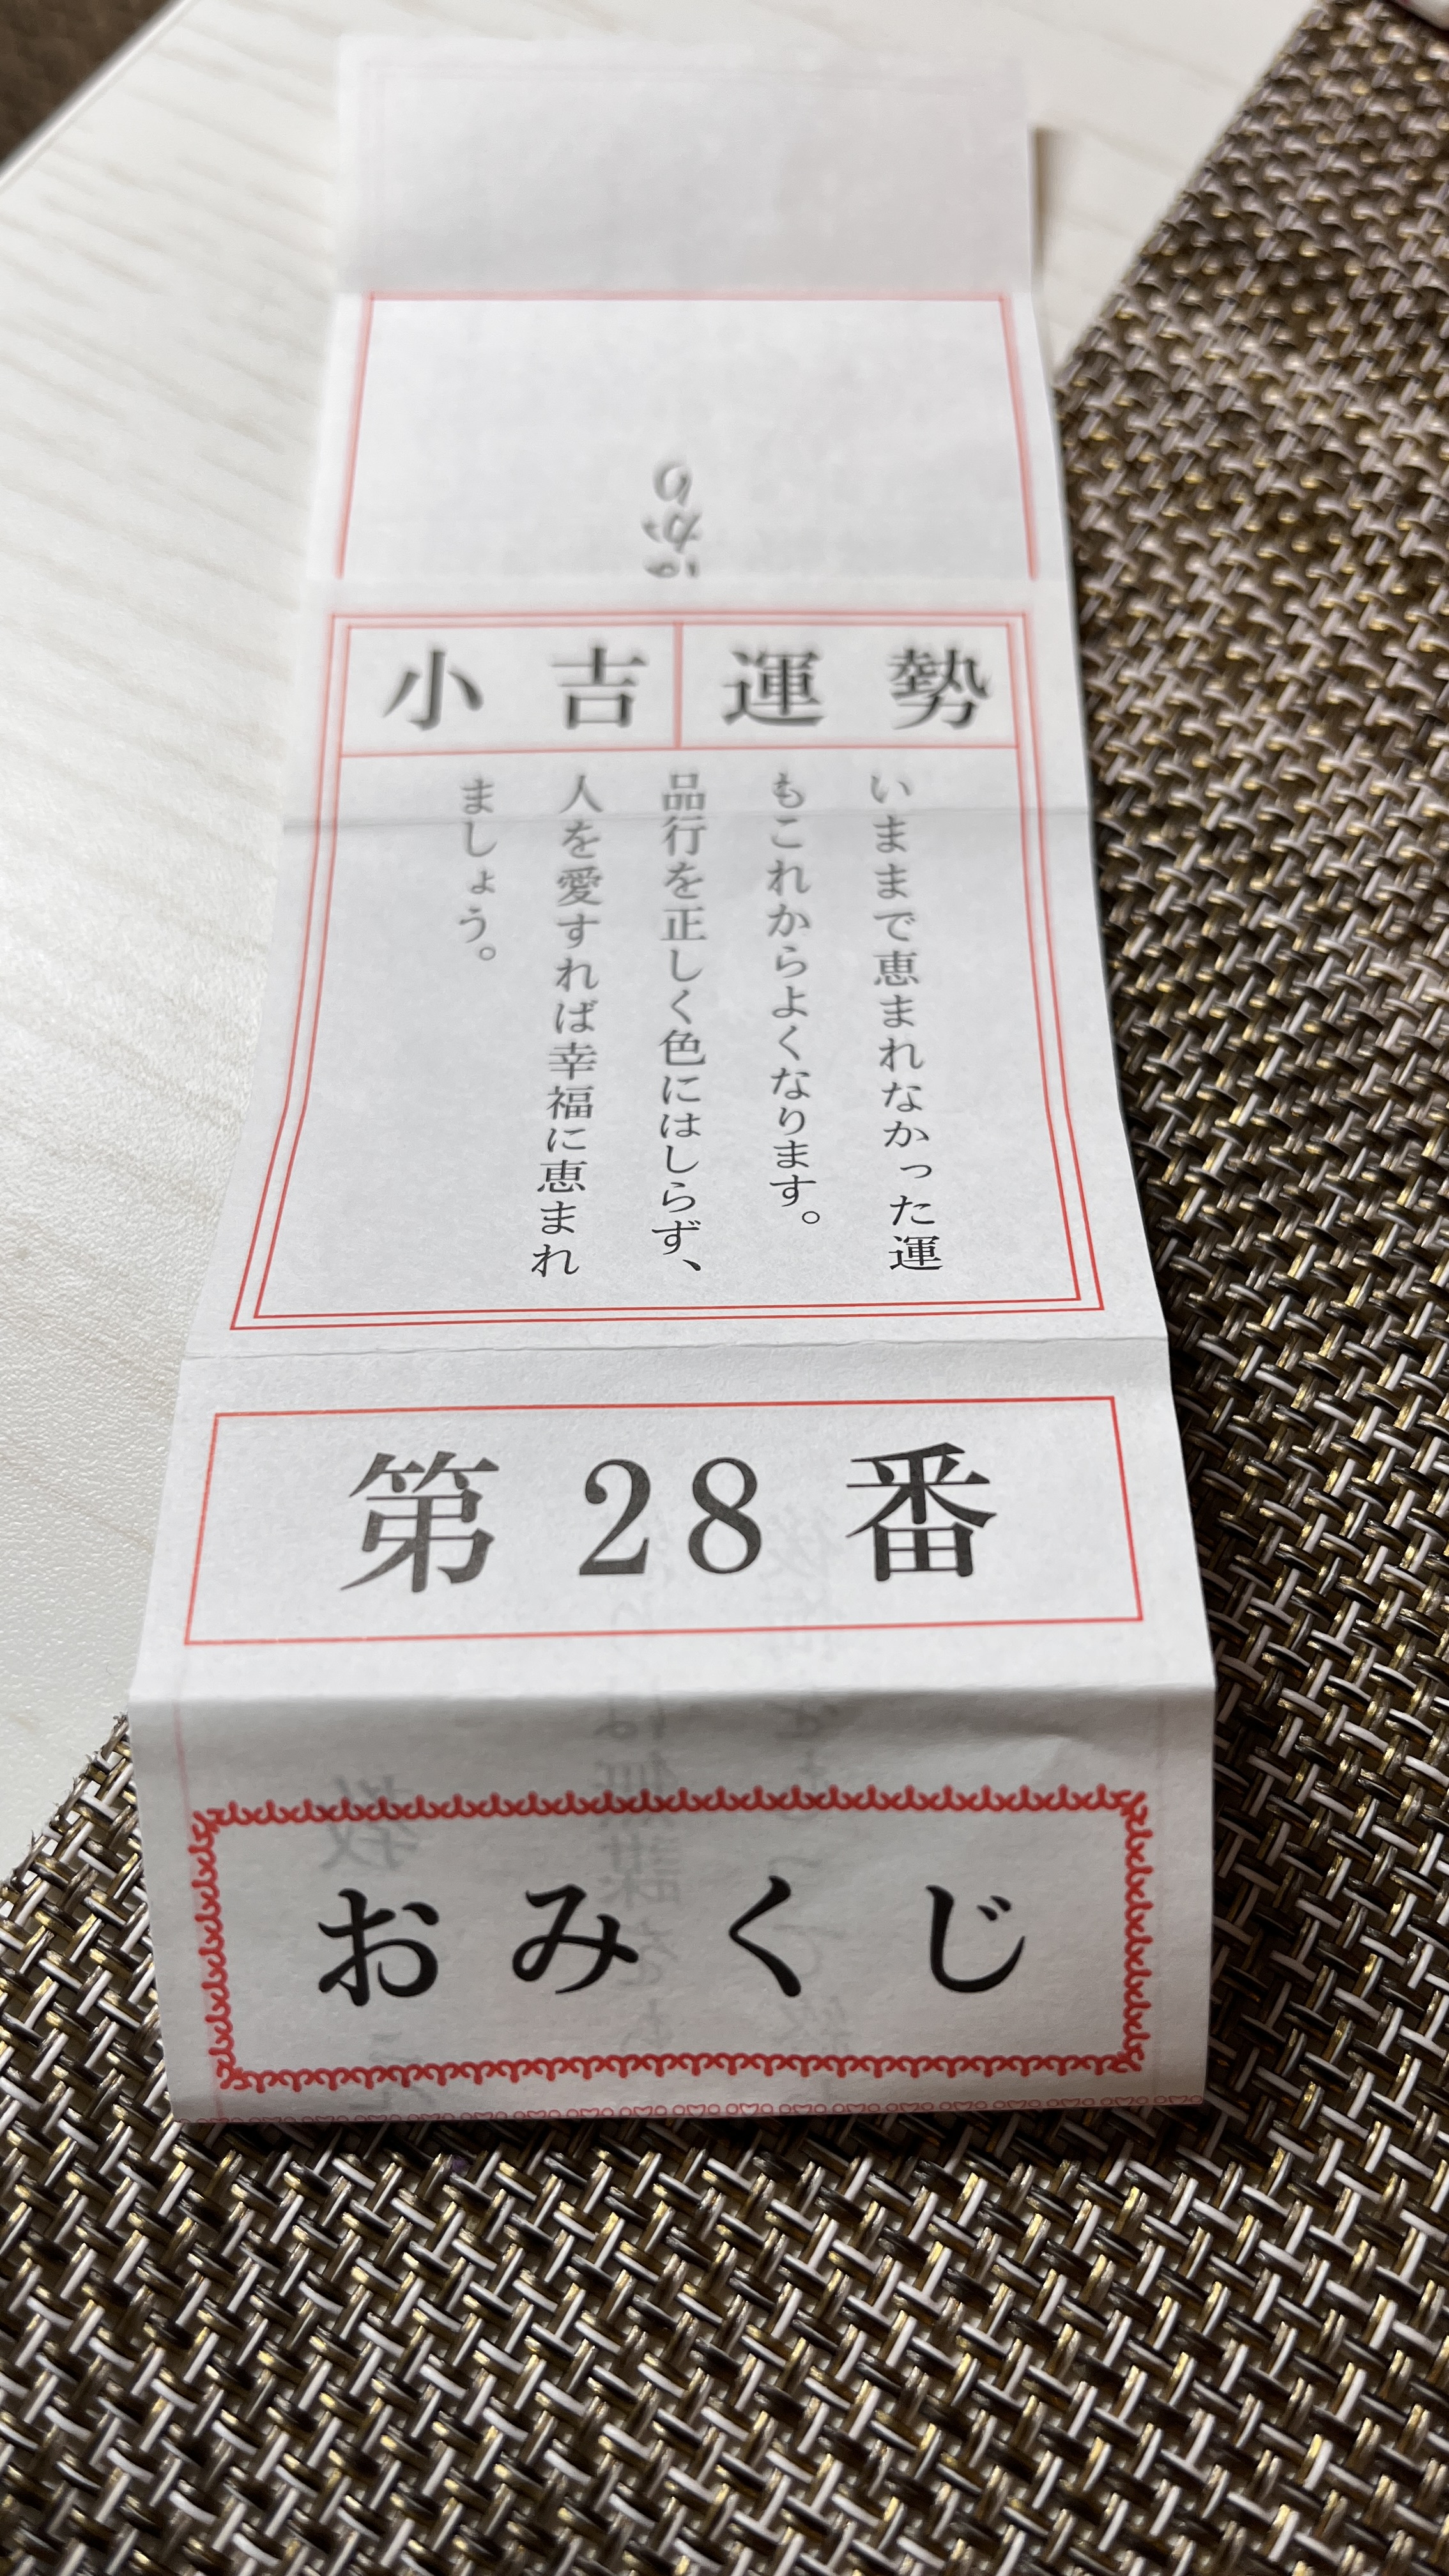 小吉 運勢
いままで恵まれなかった運
もこれからよくなります。
品行を正しく色にはしらず、
人を愛すれば幸福に恵まれ
ましょう。
第28番
おみくじ